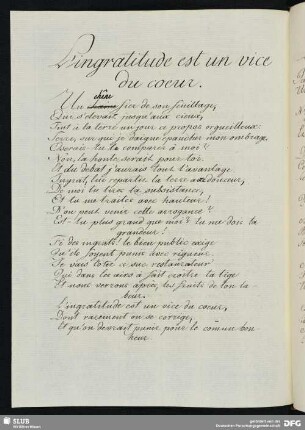 L'ingratitude est un vice
du coeur.
chêne
Un fier de son feuillage,
Qui s'elevait jusqu'aux cieux,
Tint à la terre un jour ce propos orgueilleux:
Terre, que je daigne mon ombrage,
Oserais-tu te comparer à moi?
Non, la honte serait pour toi.
Et du debat j'aurais tout l'avantage
Ingrat, lui repartit la terre avec douceur,
De moi tu tires ta subsistance,
Et tu me traites avec hauteur!
D'ou peut venir cette arrogance?
Es-tu plus grand que moi? tu me dois ta
grandeur!
des ingrats! le bien public exige
Qu'ils soient punis avec rigueur.
Je vais t'oter ce suc
Qui dans les airs a fait croitre ta tige
Et nous verrons après, les fruits de ton la-
beur.
L'ingratitude est un vice du coeur,
Dont rarement on se corrige,
Et qu'on devrait punir pour le commun bon-
heur.
SLUB
DFG